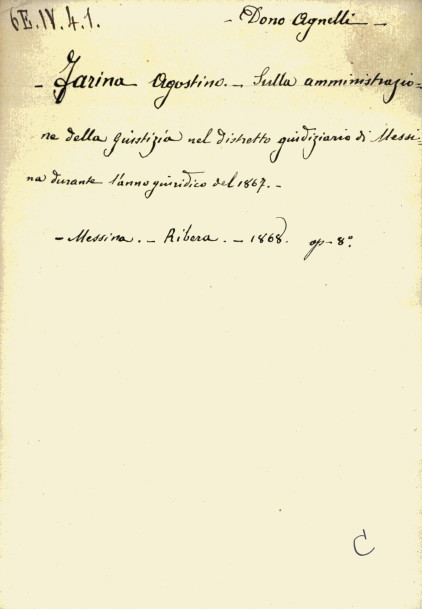 6E.IV.4.1.
- Dono Agnelli -
- Farina Agostino. - Sulla amministrazio-
ne della giustizia nel distretto giudiziario di Messi-
na durante l'anno giuridico del 1867. -
- Messina. - Ribera. - 1868. op - 8°.
C